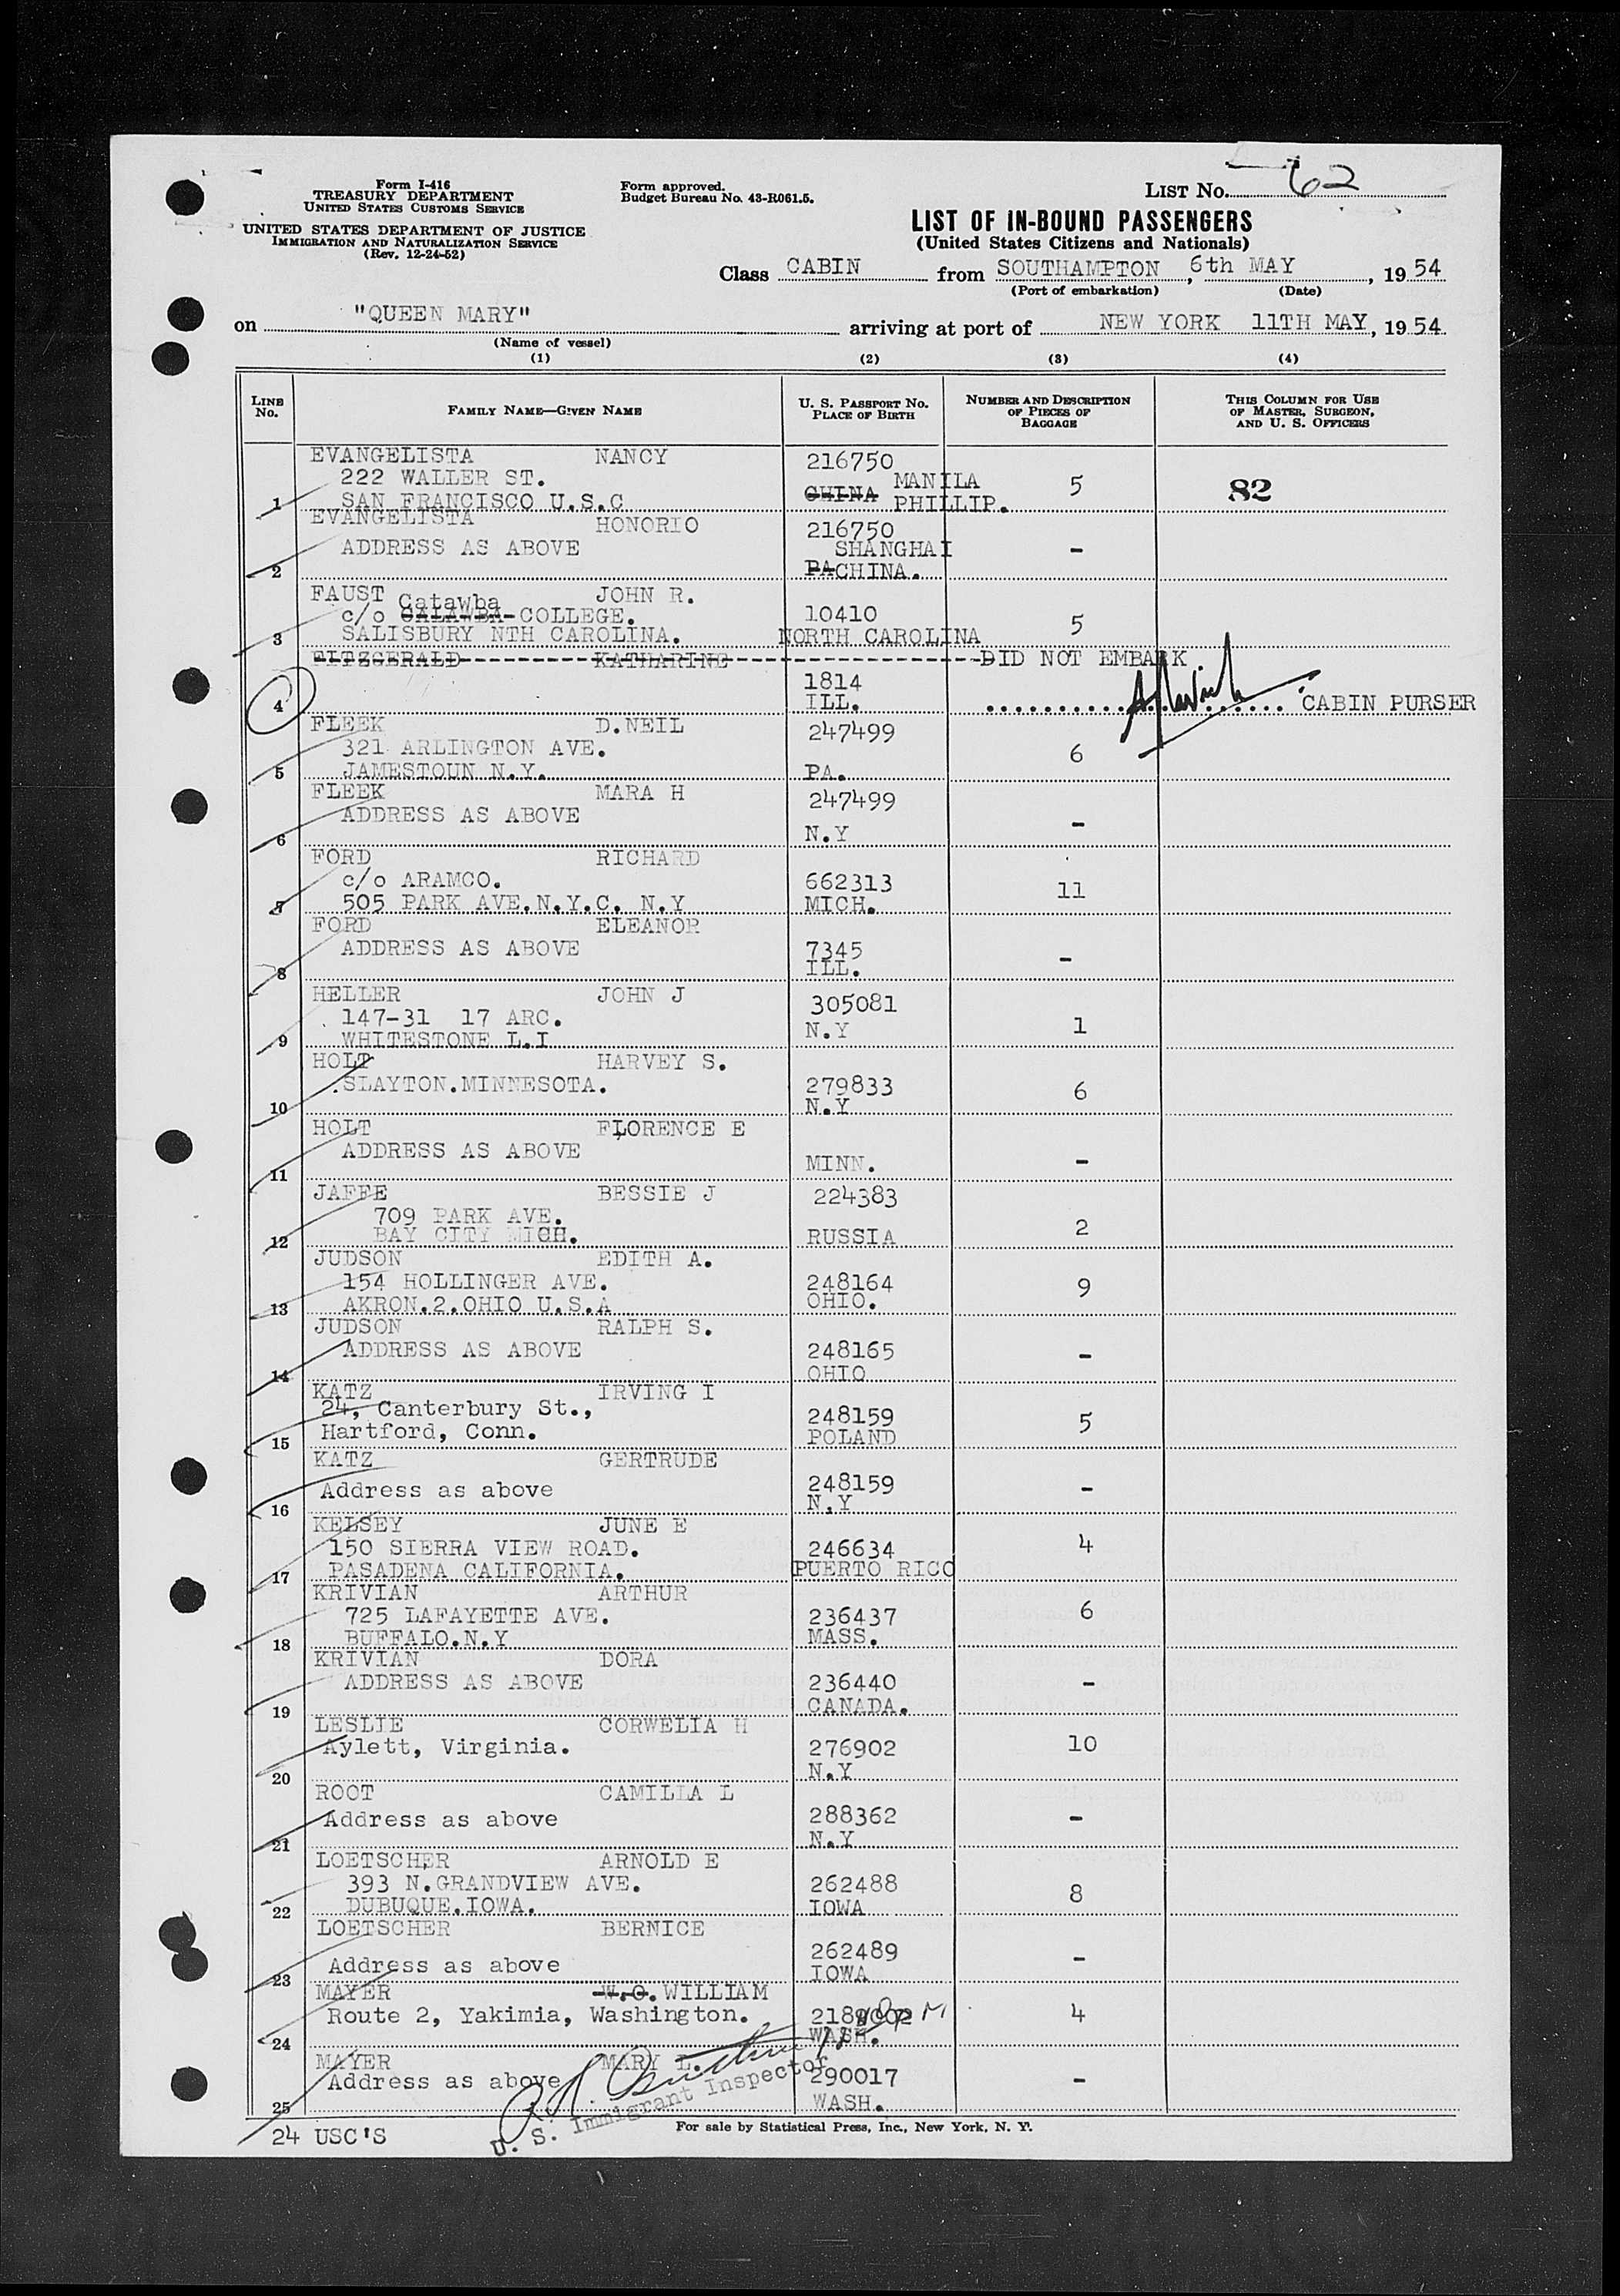 LIST NO. 62
Form I-416
TREASURY DEPARTMENT
UNITED STATES CUSTOMS SERVICE
UNITED STATES DEPARTMENT OF JUSTICE
IMMIGRATION AND NATURALIZATION SERVICE
(Rev. 12-24-52)
Form approved.
Budget Bureau No. 43-R061.5.
LIST OF IN-BOUND PASSENGERS
(United States Citizens and Nationals)
Class CABIN from SOUTHAMPTON, 6th MAY, 1954
(Port of embarkation) (Date)
on "QUEEN MARY" arriving at port of NEW YORK 11TH MAY, 1954
(Name of vessel)
(1) (2) (3) (4)
LINE NO. FAMILY NAME—GIVEN NAME U. S. PASSPORT NO. PLACE OF BIRTH NUMBER AND DESCRIPTION OF PIECES OF BAGGAGE THIS COLUMN FOR USE OF MASTER, SURGEON, AND U. S. OFFICERS
EVANGELISTA NANCY 216750
222 WALLER ST. CHINA MANILA 5 82
1 SAN FRANCISCO U.S.C PHILLIP.
EVANGELISTA HONORIO 216750
ADDRESS AS ABOVE SHANGHAI -
2 PA CHINA.
FAUST JOHN R.
c/o Catawba CALAWBA COLLEGE. 10410 5
3 SALISBURY NTH CAROLINA. NORTH CAROLINA
FITZGERALD KATHARINE DID NOT EMBARK.
1814
4 ILL. CABIN PURSER
FLEEK D.NEIL 247499
321 ARLINGTON AVE. 6
5 JAMESTOUN N.Y. PA.
FLEEK MARA H 247499
ADDRESS AS ABOVE -
6 N.Y
FORD RICHARD
c/o ARAMCO. 662313 11
7 505 PARK AVE.N.Y.C. N.Y MICH.
FORD ELEANOR
ADDRESS AS ABOVE 7345 -
8 ILL.
HELLER JOHN J 305081
147-31 17 ARC. N.Y 1
9 WHITESTONE L.I
HOLT HARVEY S.
SLAYTON.MINNESOTA. 279833 6
10 N.Y
HOLT FLORENCE E
ADDRESS AS ABOVE MINN. -
11
JAFFE BESSIE J 224383
709 PARK AVE. 2
12 BAY CITY MICH. RUSSIA
JUDSON EDITH A.
154 HOLLINGER AVE. 248164 9
13 AKRON.2.OHIO U.S.A OHIO.
JUDSON RALPH S.
ADDRESS AS ABOVE 248165 -
14 OHIO
KATZ IRVING I
24, Canterbury St., 248159 5
15 Hartford, Conn. POLAND
KATZ GERTRUDE
Address as above 248159 -
16 N.Y
KELSEY JUNE E
150 SIERRA VIEW ROAD. 246634 4
17 PASADENA CALIFORNIA. PUERTO RICO
KRIVIAN ARTHUR
725 LAFAYETTE AVE. 236437 6
18 BUFFALO.N.Y MASS.
KRIVIAN DORA
ADDRESS AS ABOVE 236440 -
19 CANADA.
LESLIE CORWELIA H
Aylett, Virginia. 276902 10
20 N.Y
ROOT CAMILLA L
Address as above 288362 -
21 N.Y
LOETSCHER ARNOLD E
393 N.GRANDVIEW AVE. 262488 8
22 DUBUQUE.IOWA. IOWA
LOETSCHER BERNICE
Address as above 262489 -
23 IOWA
MAYER W.O. WILLIAM
Route 2, Yakimia, Washington. 4
24 WASH.
MAYER MARY L.
Address as above 290017 -
25 WASH.
U. S. Immigrant Inspector
24 USC'S
For sale by Statistical Press, Inc., New York, N. Y.